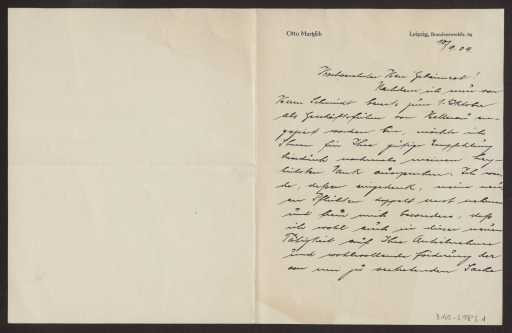 Otto Marisch
Leipzig, Brandvorwerkstr.
Hochverehrter Herr Geheimrat!
Nachdem ich nun von
Herrn Schmidt bereits zum 1. Oktober
als Geschäftsführer von Hellerau en-
gagiert worden bin, möchte ich
Ihnen für Ihre gütige Empfehlung
hierdurch nochmals meinen herz-
lichsten Dank aussprechen. Ich wer-
de, dessen eingedenk, meine neu-
en Pflichten doppelt ernst nehmen
und freue mich besonders, daß
ich wohl auch in dieser neuen
Tätigkeit auf Ihre Anteilnahme
und wohlwollende Förderung der
von mir zu vertretenden Sache